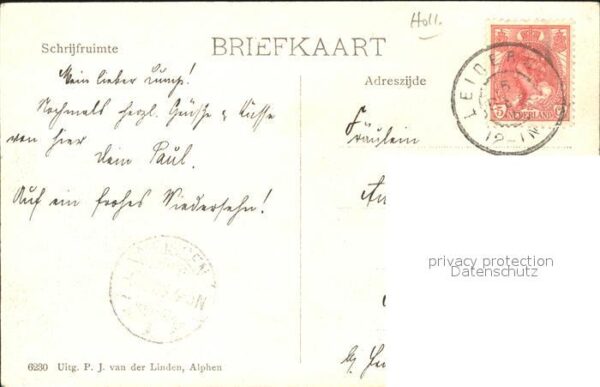 Holl.
Schrijfruimte
BRIEFKAART
Adreszijde
Mein lieber Lump!
Nochmals herzl. Grüße & Küsse
von hier
Dein Paul.
Auf ein frohes Wiedersehn!
Fräulein
NEDERLAND
12-1N
privacy protection
Datenschutz
6230 Uitg. P. J. van der Linden, Alphen